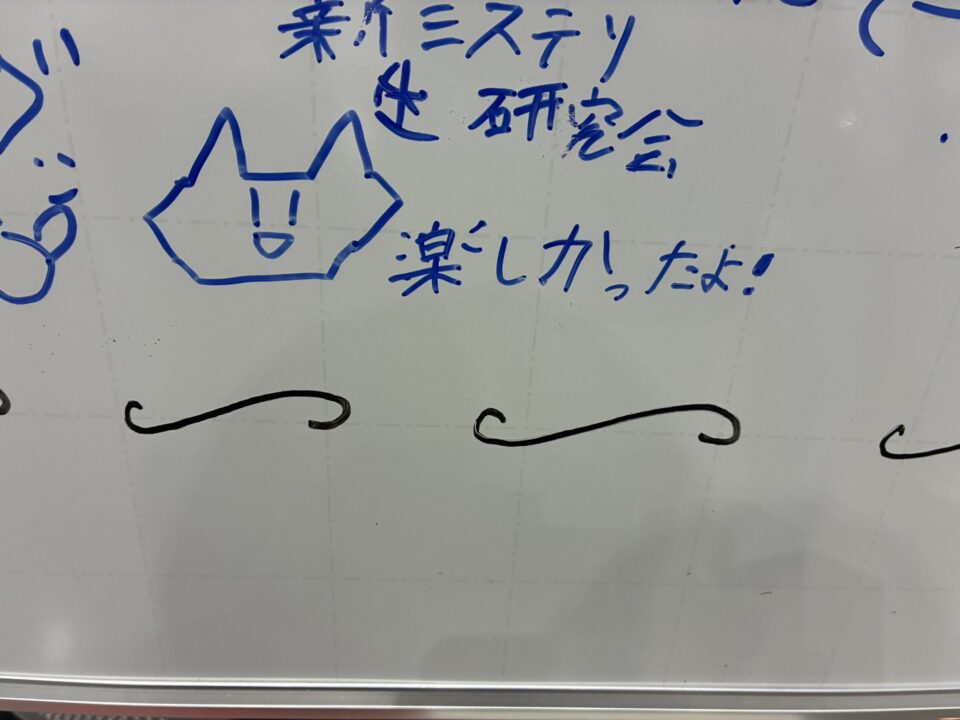 新ミステリ
研究会
楽しかったよ!